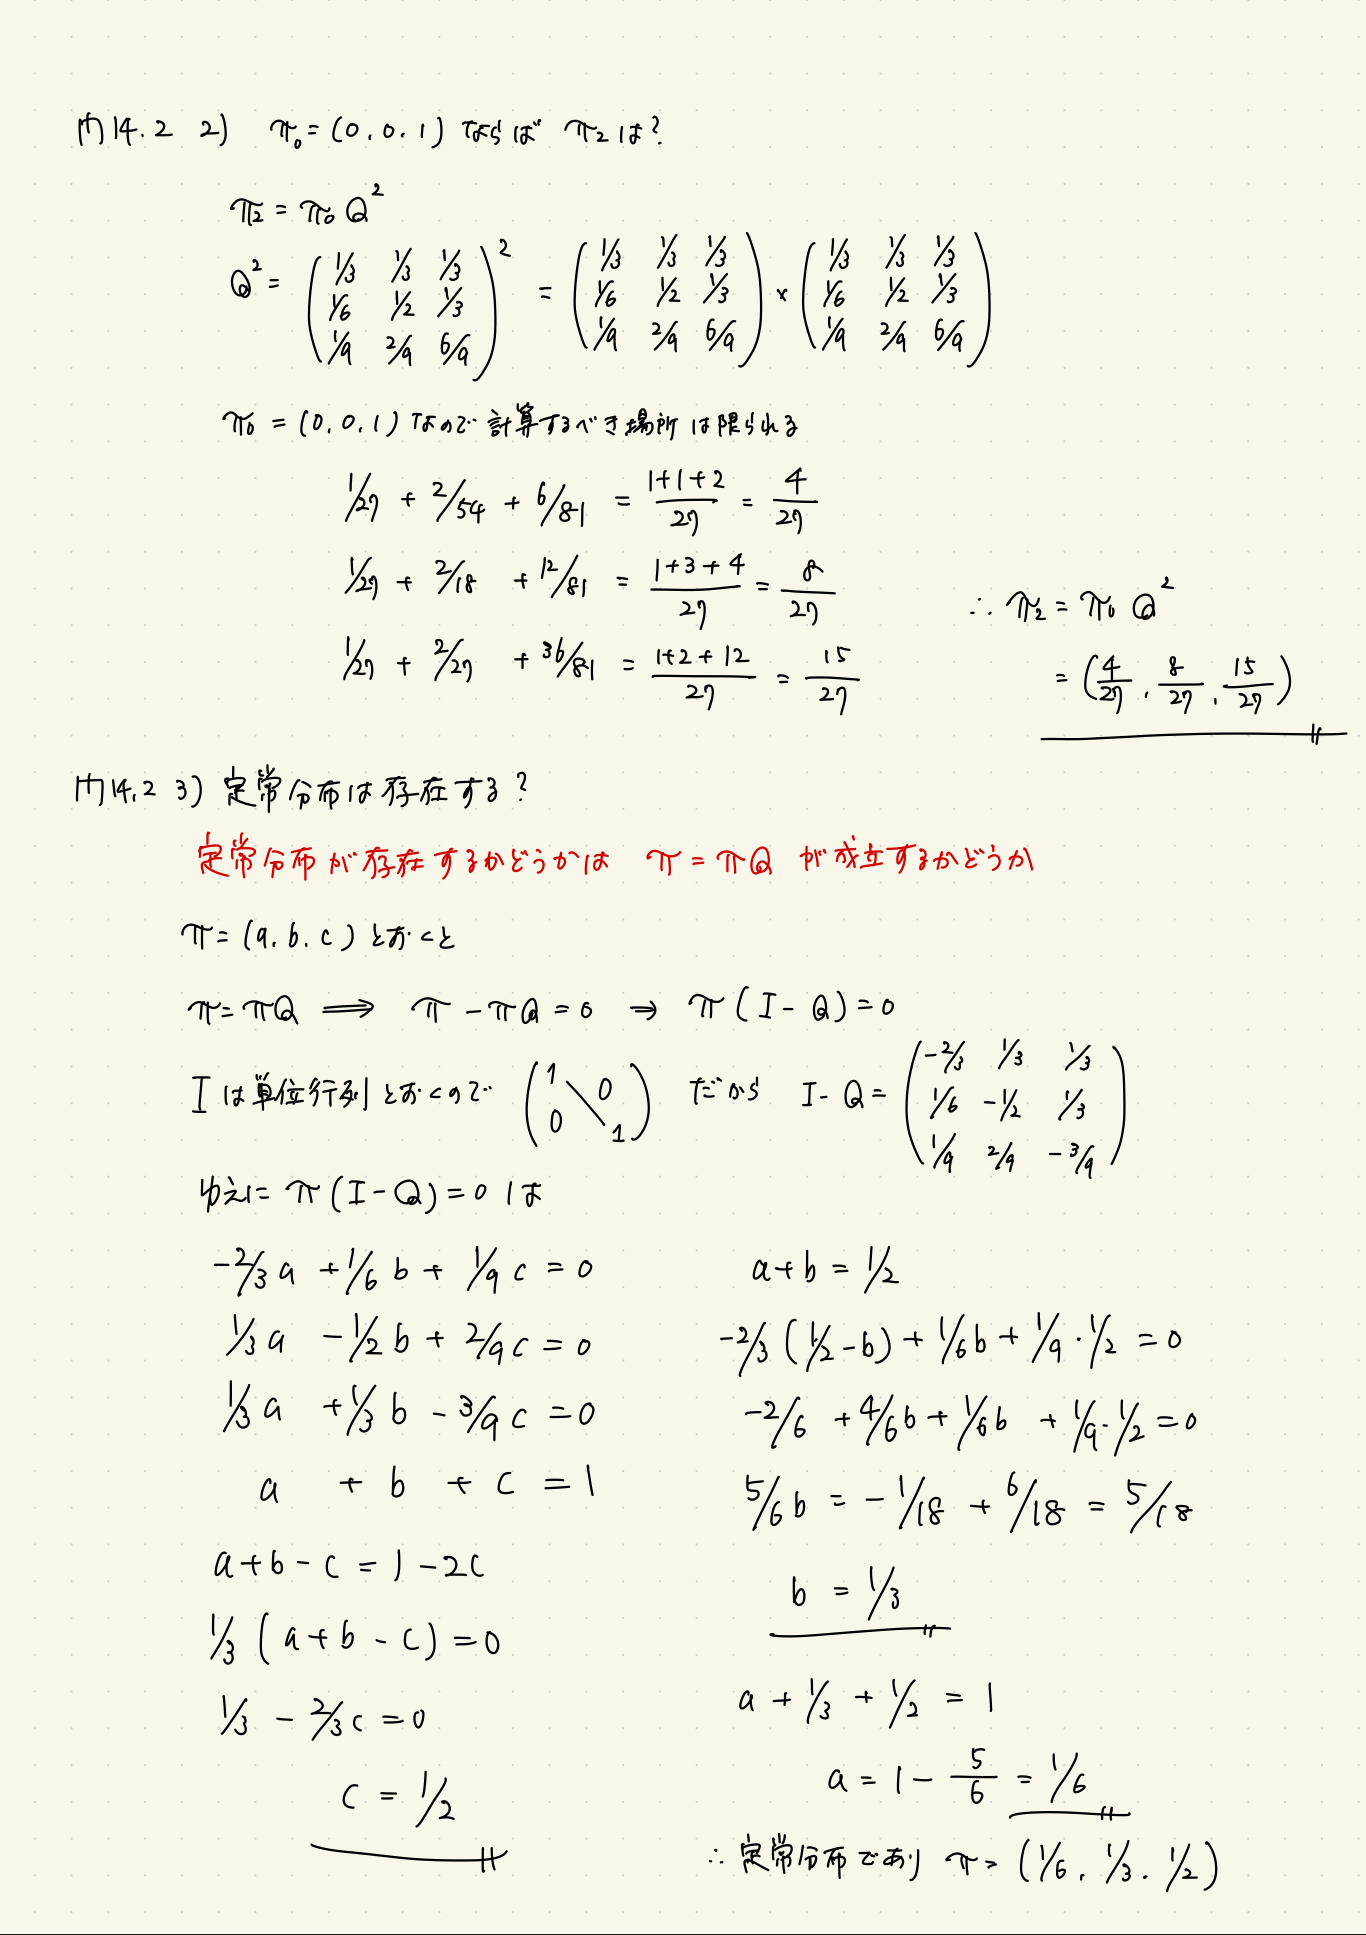 内14.2 2) π₀=(0.0.1)ならば π₂は?
π₂=π₀Q²
Q²= (1/3 1/3 1/3 1/6 1/2 1/3 1/9 2/9 6/9)² = (1/3 1/3 1/3 1/6 1/2 1/3 1/9 2/9 6/9) × (1/3 1/3 1/3 1/6 1/2 1/3 1/9 2/9 6/9)
π₀ =(0.0.1)なので計算するべき場所は限られる
1/27 + 2/54 + 6/81 = (1+1+2)/27 = 4/27
1/27 + 2/18 + 12/81 = (1+3+4)/27 = 8/27
1/27 + 2/27 + 36/81 = (1+2+12)/27 = 15/27
∴ π₂=π₀Q²
= (4/27 . 8/27 . 15/27)
内14.2 3) 定常分布は存在する?
定常分布が存在するかどうかは π=πQ が成立するかどうか
π=(a.b.c)とおくと
π=πQ ⟹ π-πQ=0 ⇒ π(I-Q)=0
Iは単位行列とおくので (1 0 0 1) だから I-Q= (-2/3 1/3 1/3 1/6 -1/2 1/3 1/9 2/9 -3/9)
ゆえに π(I-Q)=0は
-2/3a +1/6b + 1/9c =0
1/3a -1/2b + 2/9c =0
1/3a +1/3b -3/9c =0
a + b + c =1
a+b-c =1-2c
1/3(a+b-c)=0
1/3 - 2/3c =0
c = 1/2
a+b = 1/2
-2/3(1/2-b)+1/6b+1/9・1/2 =0
-2/6 +4/6b+1/6b +1/9・1/2 =0
5/6b = -1/18 + 6/18 = 5/18
b = 1/3
a + 1/3 + 1/2 = 1
a = 1- 5/6 = 1/6
∴ 定常分布であり π= (1/6 . 1/3 . 1/2)